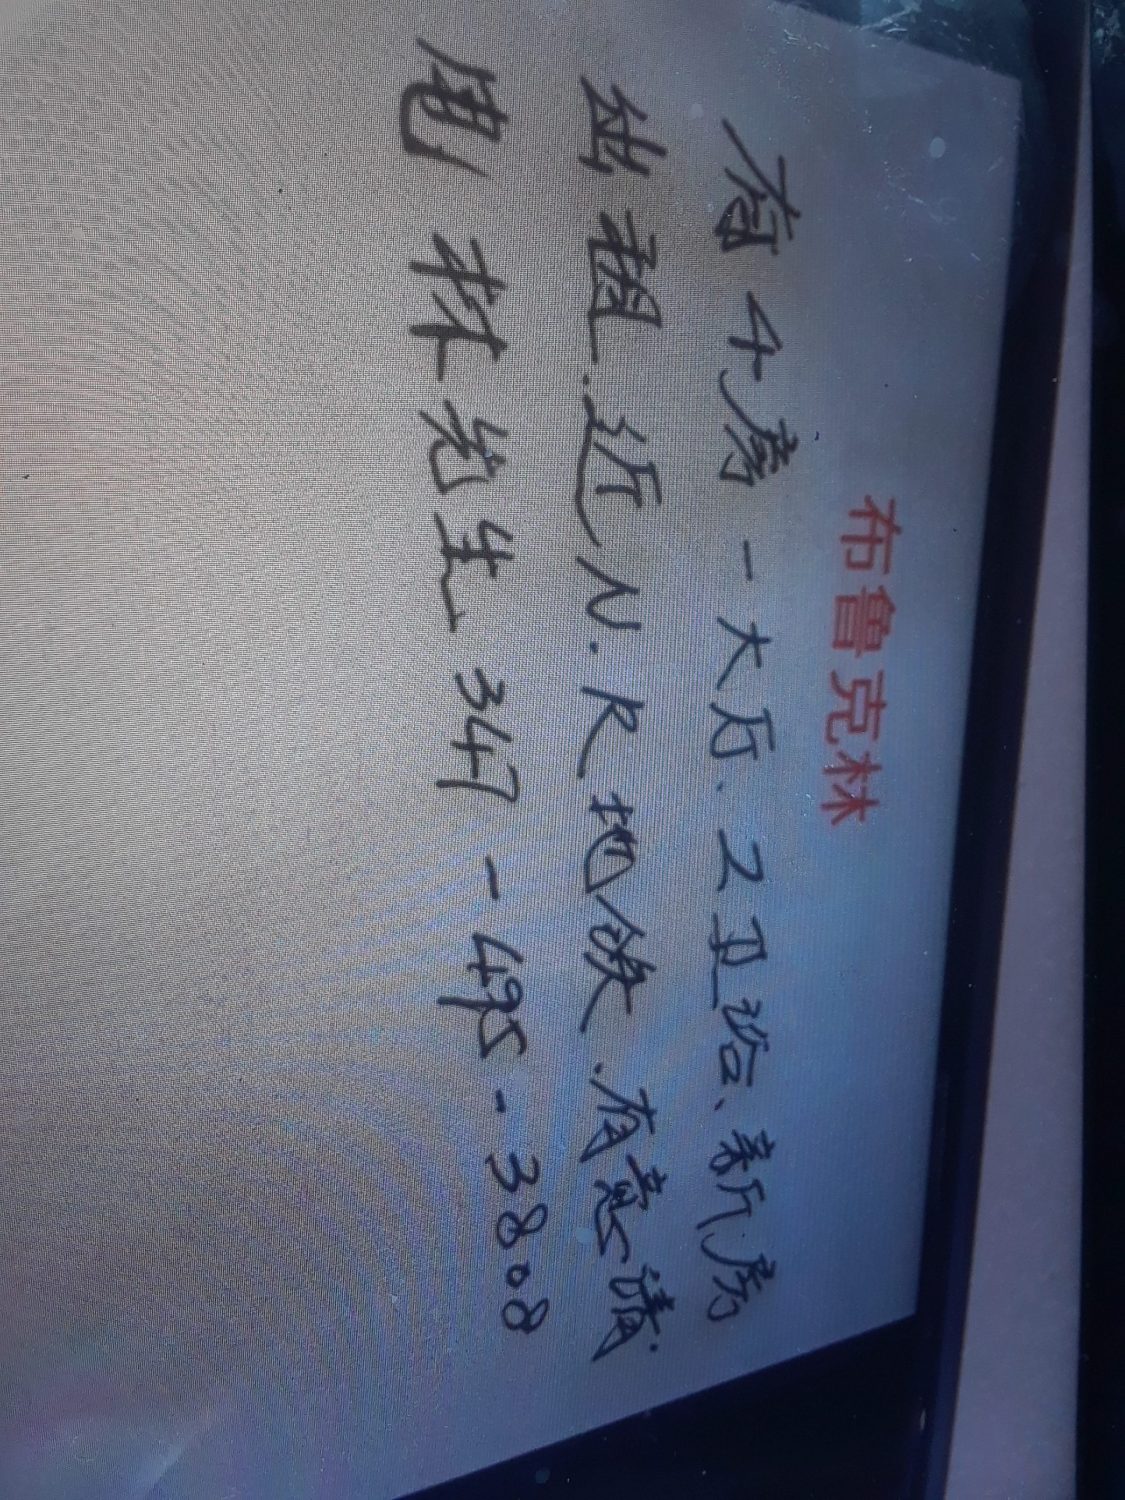 布鲁克林
有4房一大厅.2卫浴、新房
出租.近N.R地铁.有意请
电林先生347-495-3808